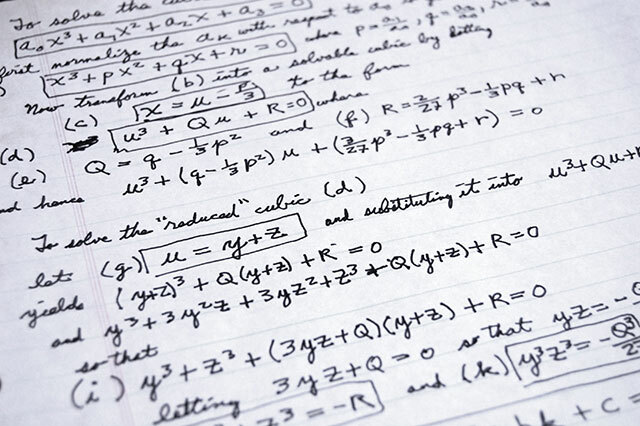 To solve the
a₀x³ + a₁x² + a₂x + a₃ = 0
first normalize the aₖ with respect to
x³ + px² + qx + r = 0 where p = a₁/a₀, q = a₂/a₀, r =
Now transform (b) into a solvable cubic by letting
(c) x = u − p/3 to the form
(d) u³ + Qu + R = 0 where
(e) Q = q − ⅓p² and (f) R = 2/27 p³ − ⅓pq + r
and hence u³ + (q − ⅓p²)u + (2/27 p³ − ⅓pq + r) = 0
To solve the "reduced" cubic (d)
let (g) u = y + z and substituting it into u³ + Qu +
yields (y+z)³ + Q(y+z) + R = 0
and y³ + 3y²z + 3yz² + z³ + Q(y+z) + R = 0
so that
(i) y³ + z³ + (3yz + Q)(y+z) + R = 0
letting 3yz + Q = 0 so that yz = −
z³ = −R and (k) y³z³ = −Q³/
+ C =